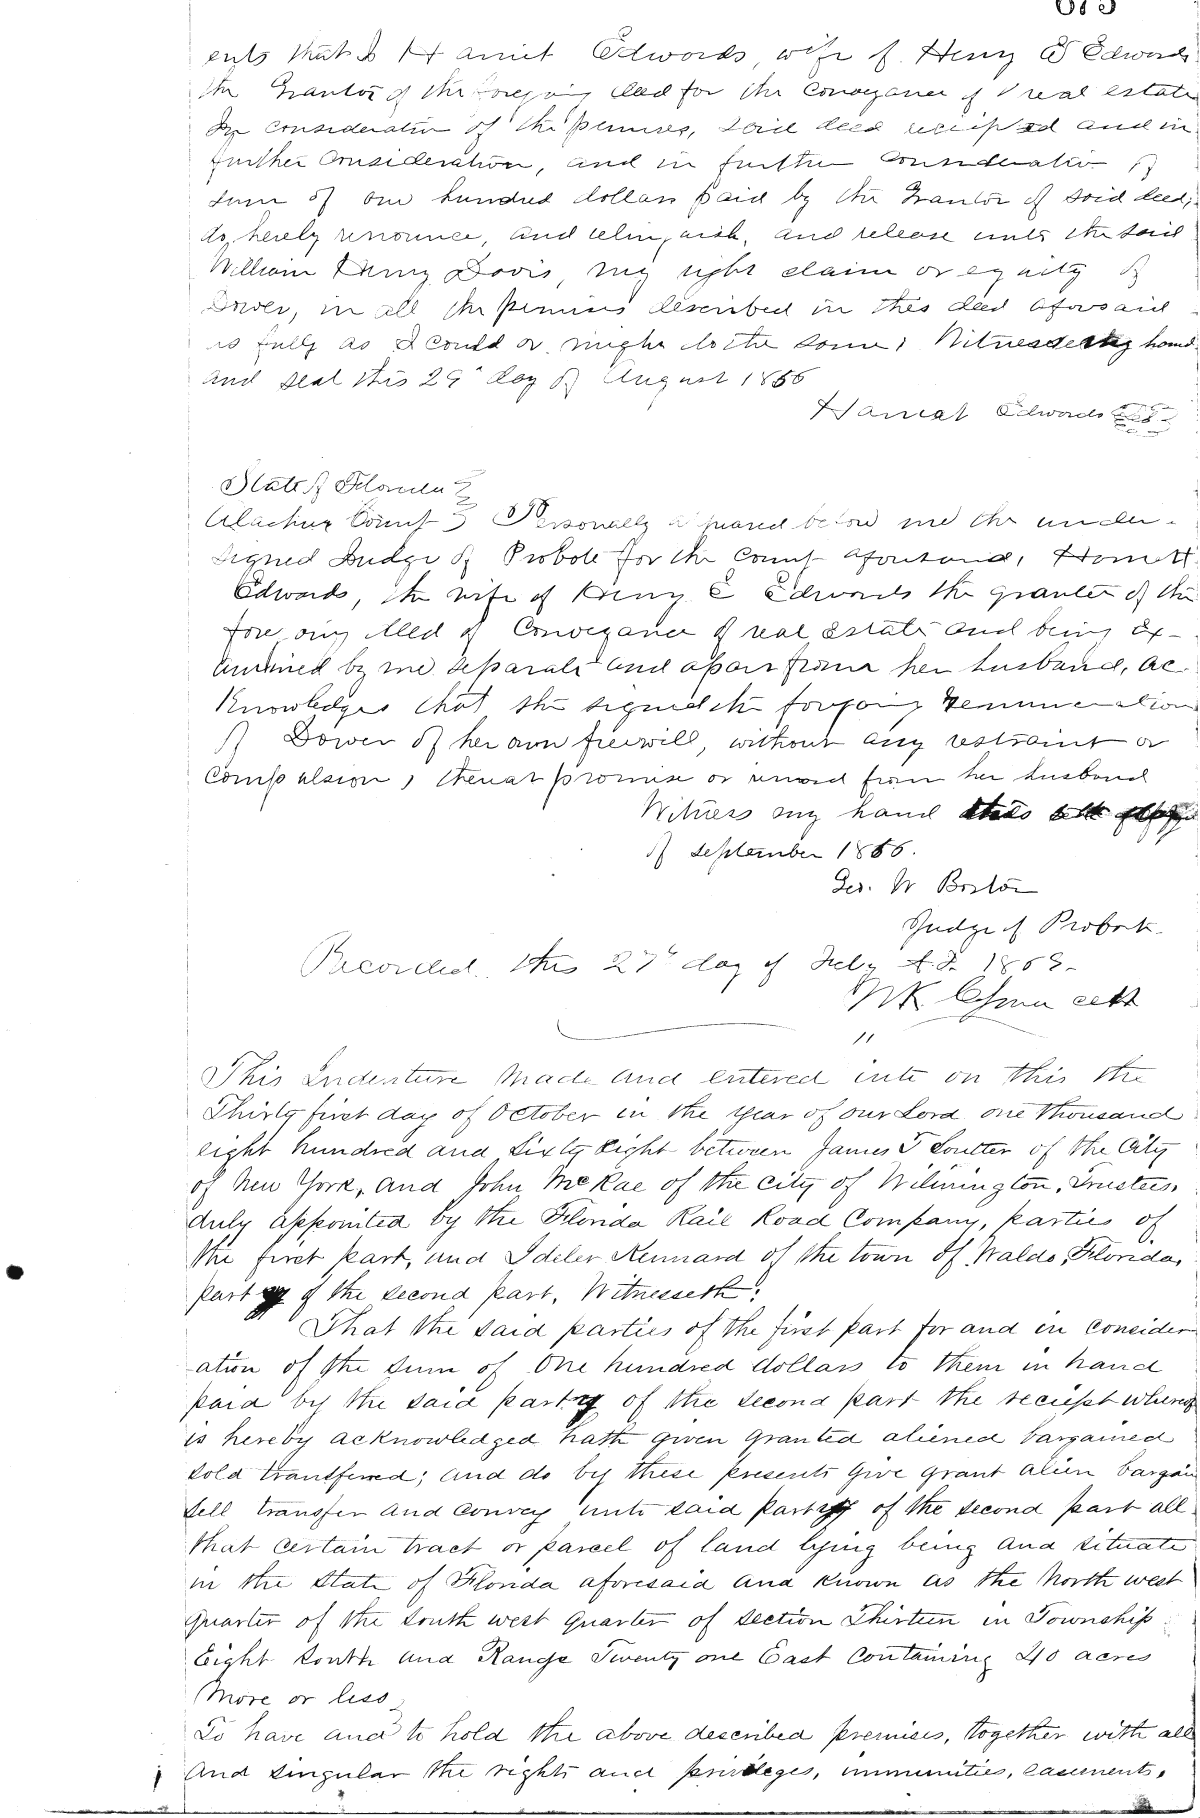 ents that I Harriet Edwards, wife of Henry E Edwards
the Grantor of the foregoing deed for the conveyance of real estate
In consideration of the premises, said deed recipted and in
further consideration, and in further consideration of
sum of one hundred dollars paid by the Grantor of said deed,
do, hereby renounce, and relinquish, and release unto the said
William Henry Davis, my right claim or equity of
Dower, in all the premises described in this deed aforesaid
as fully as I could or might do the same; Witness my hand
and seal this 29" day of August 1856
Harriet Edwards
State of Florida
Alachua County Personally appeared before me the under-
signed Judge of Probate for the County aforesaid, Harriett
Edwards, the wife of Henry E Edwards the granter of the
foregoing deed of Conveyance of real estate and being ex-
amined by me separate and apart from her husband, ac-
knowledges that she signed the forgoing renunciation
of Dower of her own free will, without any restraint or
compulsion, threat promise or reward from her husband
Witness my hand this
of September 1856.
Geo. W Boston
Judge of Probate
Recorded this 27" day of July A.D. 1869
This Indenture Made and entered into on this the
Thirty first day of October in the year of our Lord one thousand
eight hundred and Sixty Eight between James T Soutter of the City
of New York, and John McRae of the city of Wilmington, Trustees,
duly appointed by the Florida Rail Road Company, parties of
the first part, and Ideler Kennard of the town of Waldo, Florida,
party of the second part, Witnesseth:
That the said parties of the first part for and in consider-
ation of the sum of One hundred dollars to them in hand
paid by the said party of the second part the reciept whereof
is hereby acknowledged hath given granted aliened bargained
sold transfered; and do by these presents give grant alien bargain
sell transfer and convey unto said party of the second part all
that certain tract or parcel of land lying being and situate
in the State of Florida aforesaid and known as the North west
quarter of the South west quarter of section Thirteen in Township
Eight South and Range Twenty one East Containing 40 acres
More or less
To have and to hold the above described premises, together with all
and singular the rights and privileges, immunities, easements,